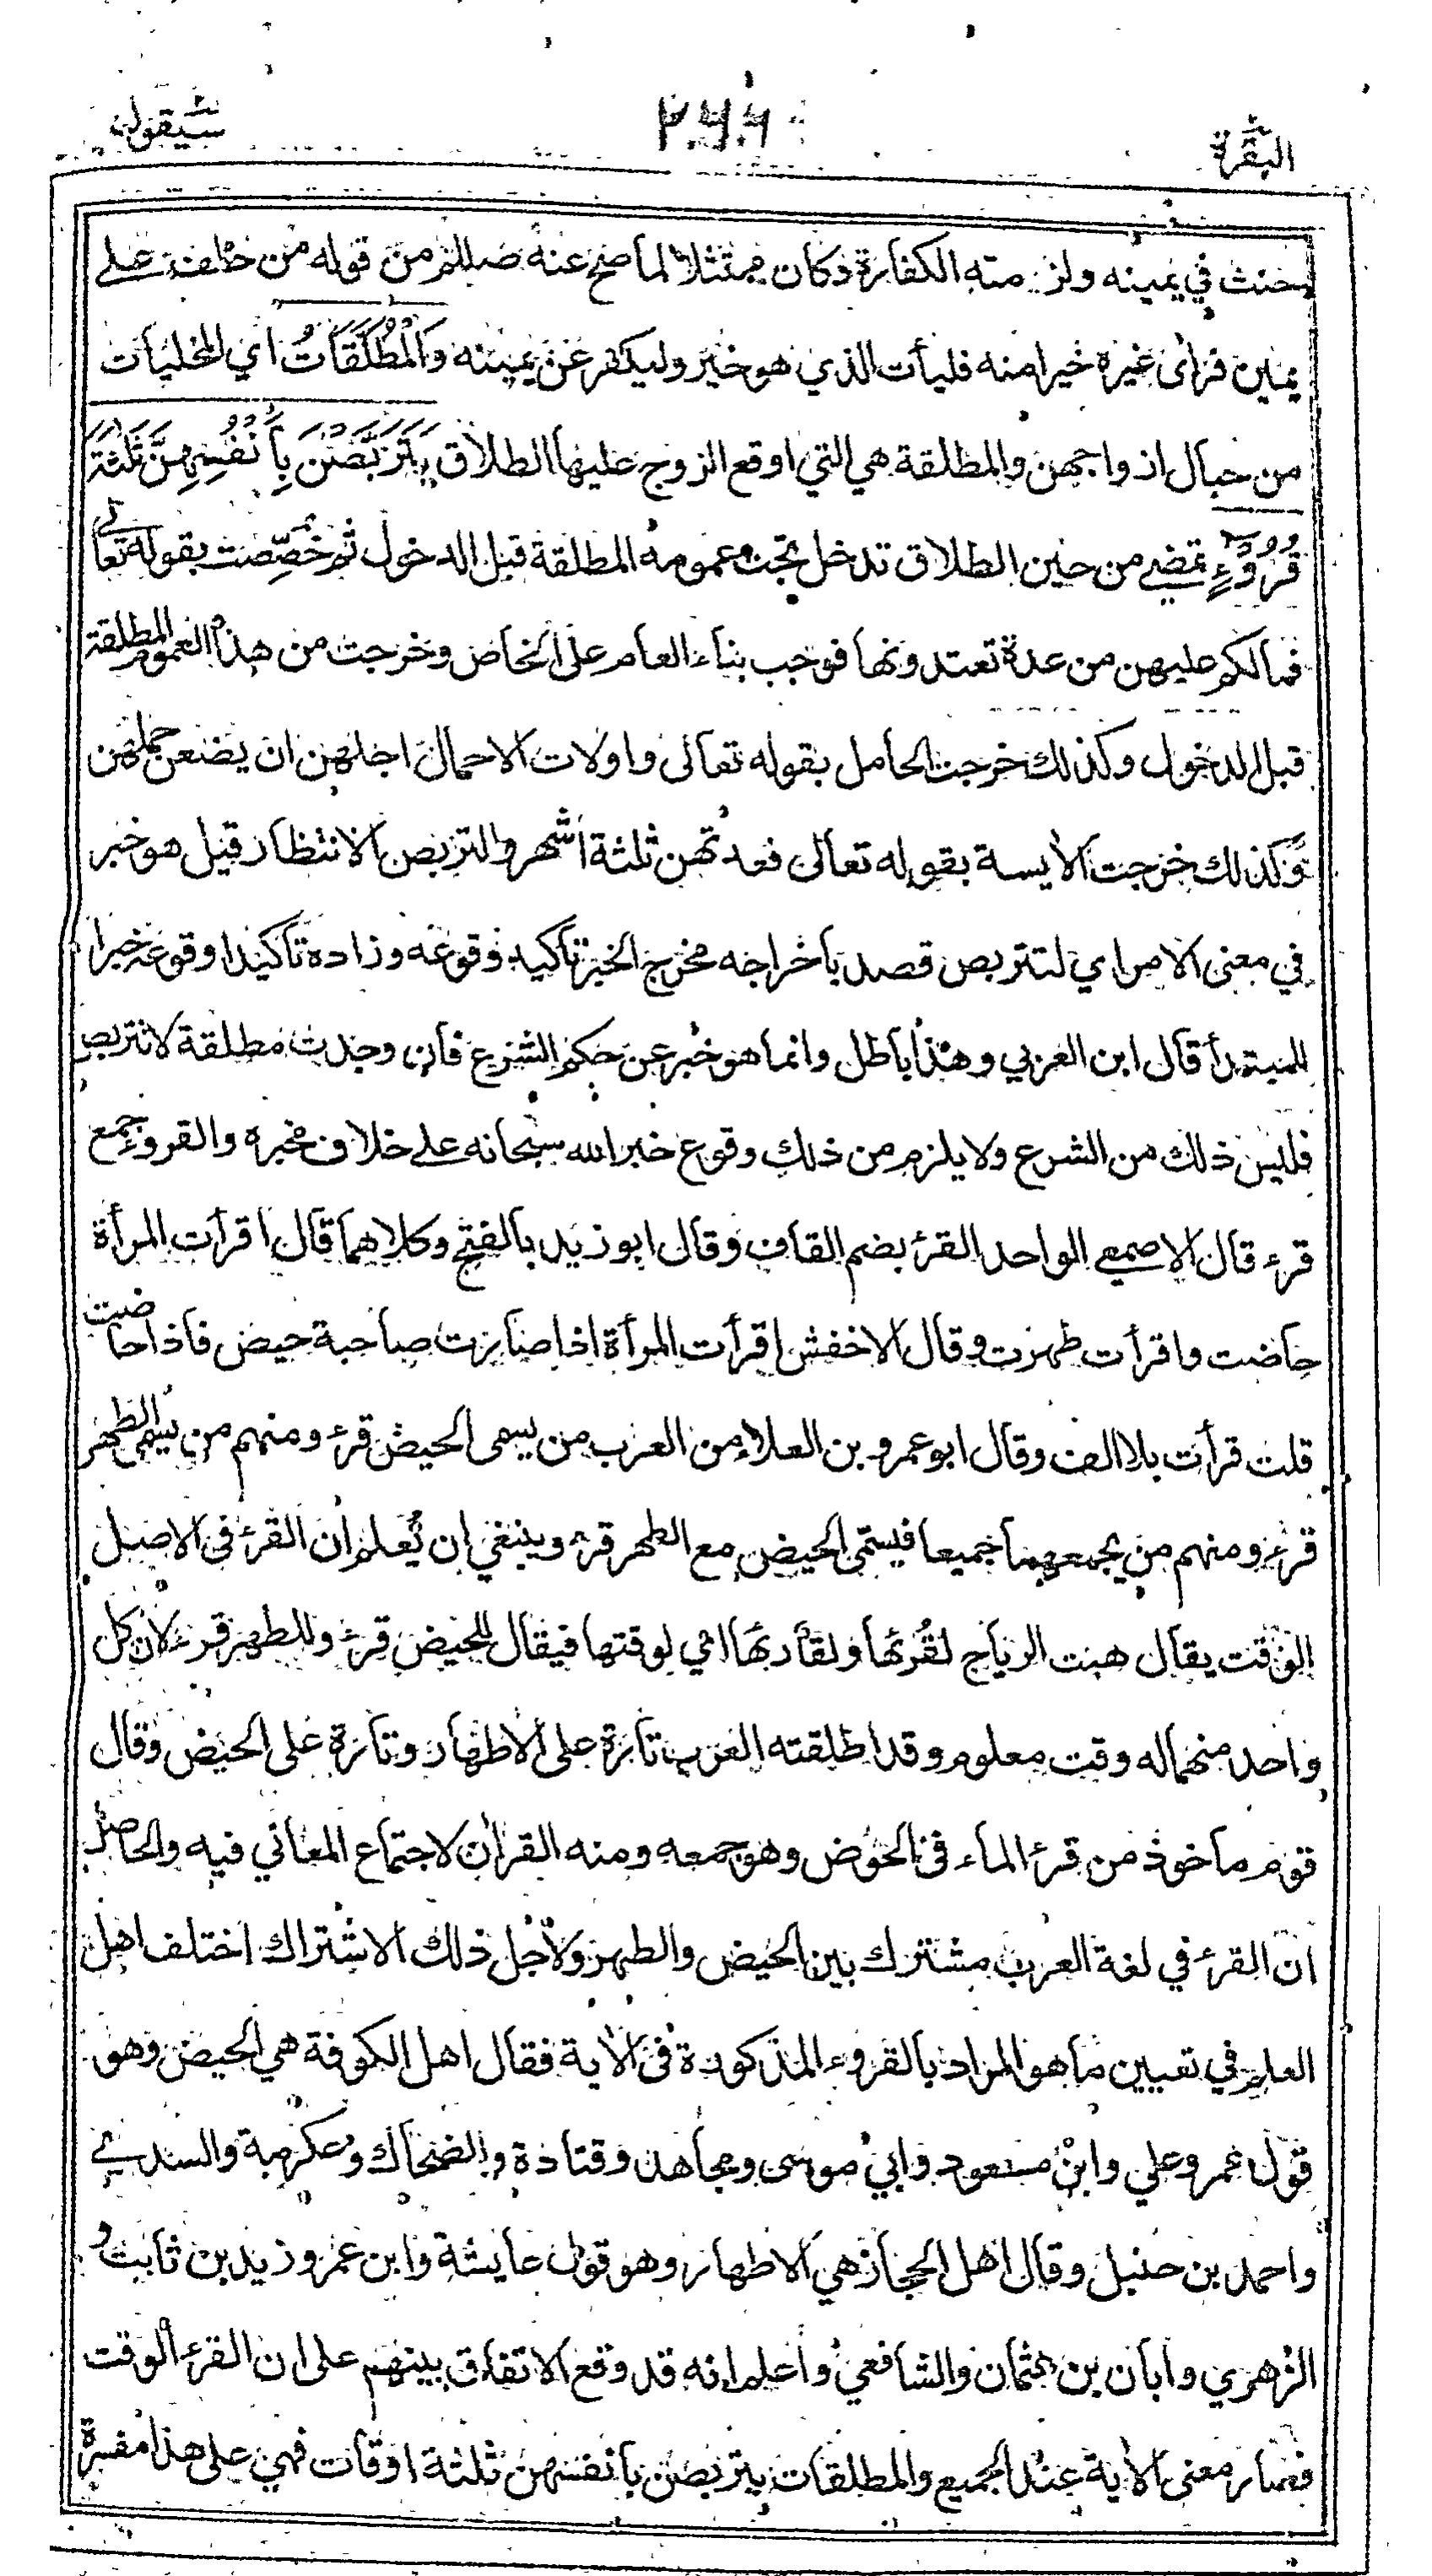 البقرة
٢٦٦
سيقول
حنث في يمينه ولزمته الكفارة وكان ممتثلا لما صح عنه صللم من قوله من حلف على
يمين فرأى غيره خيرا منه فليأت الذي هو خير وليكفر عن يمينه وَالْمُطَلَّقَاتُ اي المخليات
من حبال ازواجهن والمطلقة هي التي اوقع الزوج عليها الطلاق يَتَرَبَّصْنَ بِأَنْفُسِهِنَّ ثَلٰثَةَ
قُرُوْءٍ تمضي من حين الطلاق تدخل تحت عمومه المطلقة قبل الدخول ثم خصصت بقوله تعالى
فما لكم عليهن من عدة تعتدونها فوجب بناء العام على الخاص وخرجت من هذا العموم المطلقة
قبل الدخول وكذلك خرجت الحامل بقوله تعالى واولات الاحمال اجلهن ان يضعن حملهن
وكذلك خرجت الأيسة بقوله تعالى فعدتهن ثلثة اشهر والتربص الانتظار قيل هو خبر
في معنى الامر اي لتتربص قصد باخراجه مخرج الخبر تأكيد وقوعه وزاده تأكيدا وقوعه خبرا
للمبتدأ قال ابن العربي وهذا باطل وانما هو خبر عن حكم الشرع فان وجدت مطلقة لا تتربص
فليس ذلك من الشرع ولا يلزم من ذلك وقوع خبر الله سبحانه على خلاف مخبره والقروء جمع
قرء قال الاصمعي الواحد القرء بضم القاف وقال ابو زيد بالفتح وكلاهما قال اقرأت المرأة
حاضت واقرأت طهرت وقال الاخفش اقرأت المرأة اذا صارت صاحبة حيض فاذا حاضت
قلت قرأت بلا الف وقال ابو عمرو بن العلاء من العرب من يسمى الحيض قرء ومنهم من يسمى الطهر
قرء ومنهم من يجمعهما جميعا فيسمى الحيض مع الطهر قرء وينبغي ان يُعلم ان القرء فى الاصل
الوقت يقال هبت الرياح لقُرئها ولقارئها اي لوقتها فيقال للحيض قرء وللطهر قرء لان كل
واحد منهما له وقت معلوم وقد اطلقته العرب تارة على الاطهار وتارة على الحيض وقال
قوم ماخوذ من قرء الماء فى الحوض وهو جمعه ومنه القرأن لاجتماع المعاني فيه والحاصل
ان القرء في لغة العرب مشترك بين الحيض والطهر ولأجل ذلك الاشتراك اختلف اهل
العلم في تعيين ما هو المراد بالقروء المذكورة فى الأية فقال اهل الكوفة هي الحيض وهو
قول عمر وعلي وابن مسعود وابي موسى ومجاهد وقتادة والضحاك وعكرمة والسدي
واحمد بن حنبل وقال اهل الحجاز هي الاطهار وهو قول عايشة وابن عمر وزيد بن ثابت و
الزهري وابان بن عثمان والشافعي واعلم انه قد وقع الاتفاق بينهم على ان القرء الوقت
فصار معنى الأية عند الجميع والمطلقات يتربصن بانفسهن ثلثة اوقات فهي على هذا مفسرة